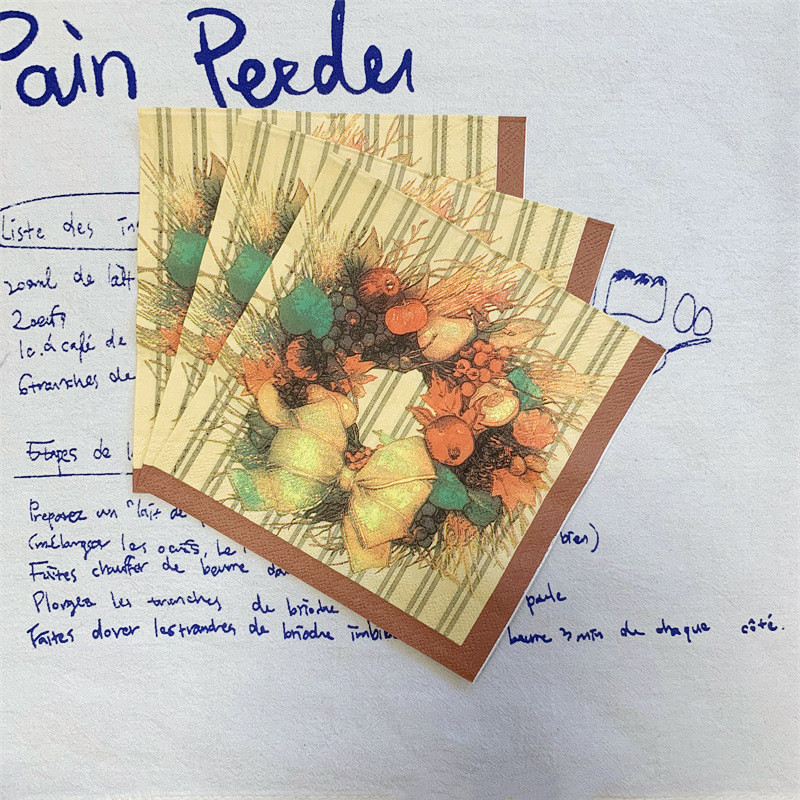 Pain Perdu
Liste des in
200ml de lait
2 oeufs
1c. à café de
6 tranches de
Etapes de l
Preparez un "lait de
(mélanger les oeufs, le bien)
Faites chauffer de beurre da
Plongez les tranches de brioche poele
Faites dorer les tranches de brioche imbib beurre 3 min de chaque côté.